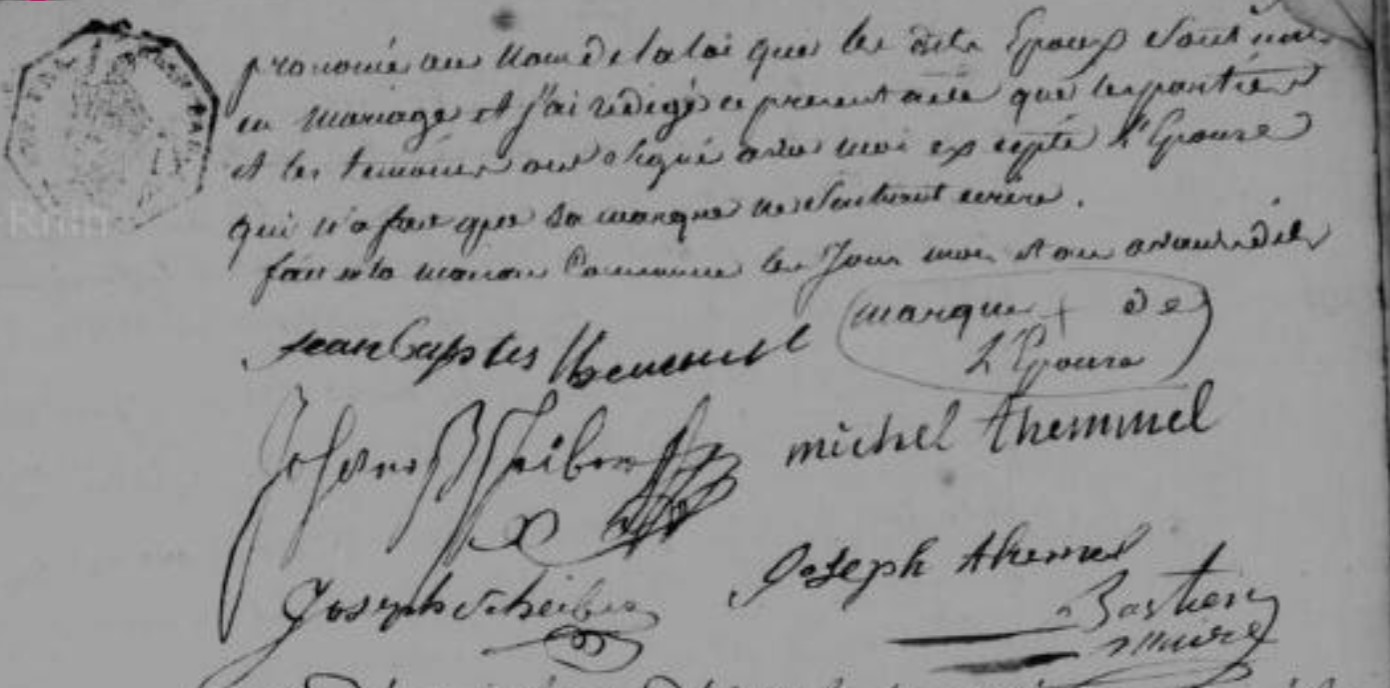 prononcé au nom de la loi que les dits Epoux sont unis
en mariage et j'ai rédigé ce present acte que les parties
et les temoins ont signé avec moi excepté l'Epouse
qui n'a fait que sa marque ne sachant ecrire.
fait en la maison Commune les Jour mois et an avant dits
marque + de
L'Epouse
jean baptes themmel
michel themmel
Joseph themel
Joseph Scheiber
Bastien
maire
Rhin